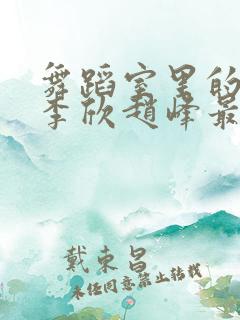 舞蹈室里的
李欣赵峰最
戴東昌
未经同意禁止转载